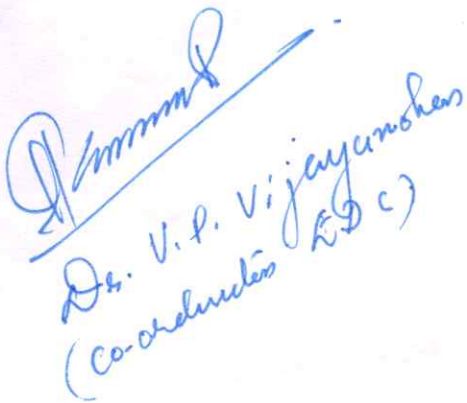 Dr. V.P. Vijayamohan
(Co-ordinator EDC)